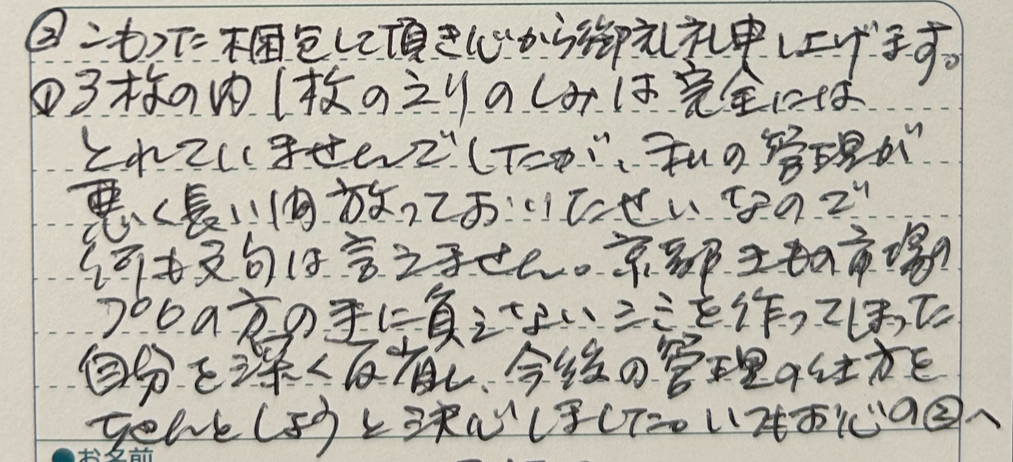 ②こもった梱包して頂き心から御礼礼申し上げます。
①3枚の内1枚のえりのしみは完全には
とれていませんでしたが、私の管理が
悪く長い間放っておいたせいなので
何も文句は言えません。京都きもの市場の
プロの方の手に負えないシミを作ってしまった
自分を深く反省し、今後の管理の仕方を
ちゃんとしようと決心しました。いつもお心の②へ
●お名前